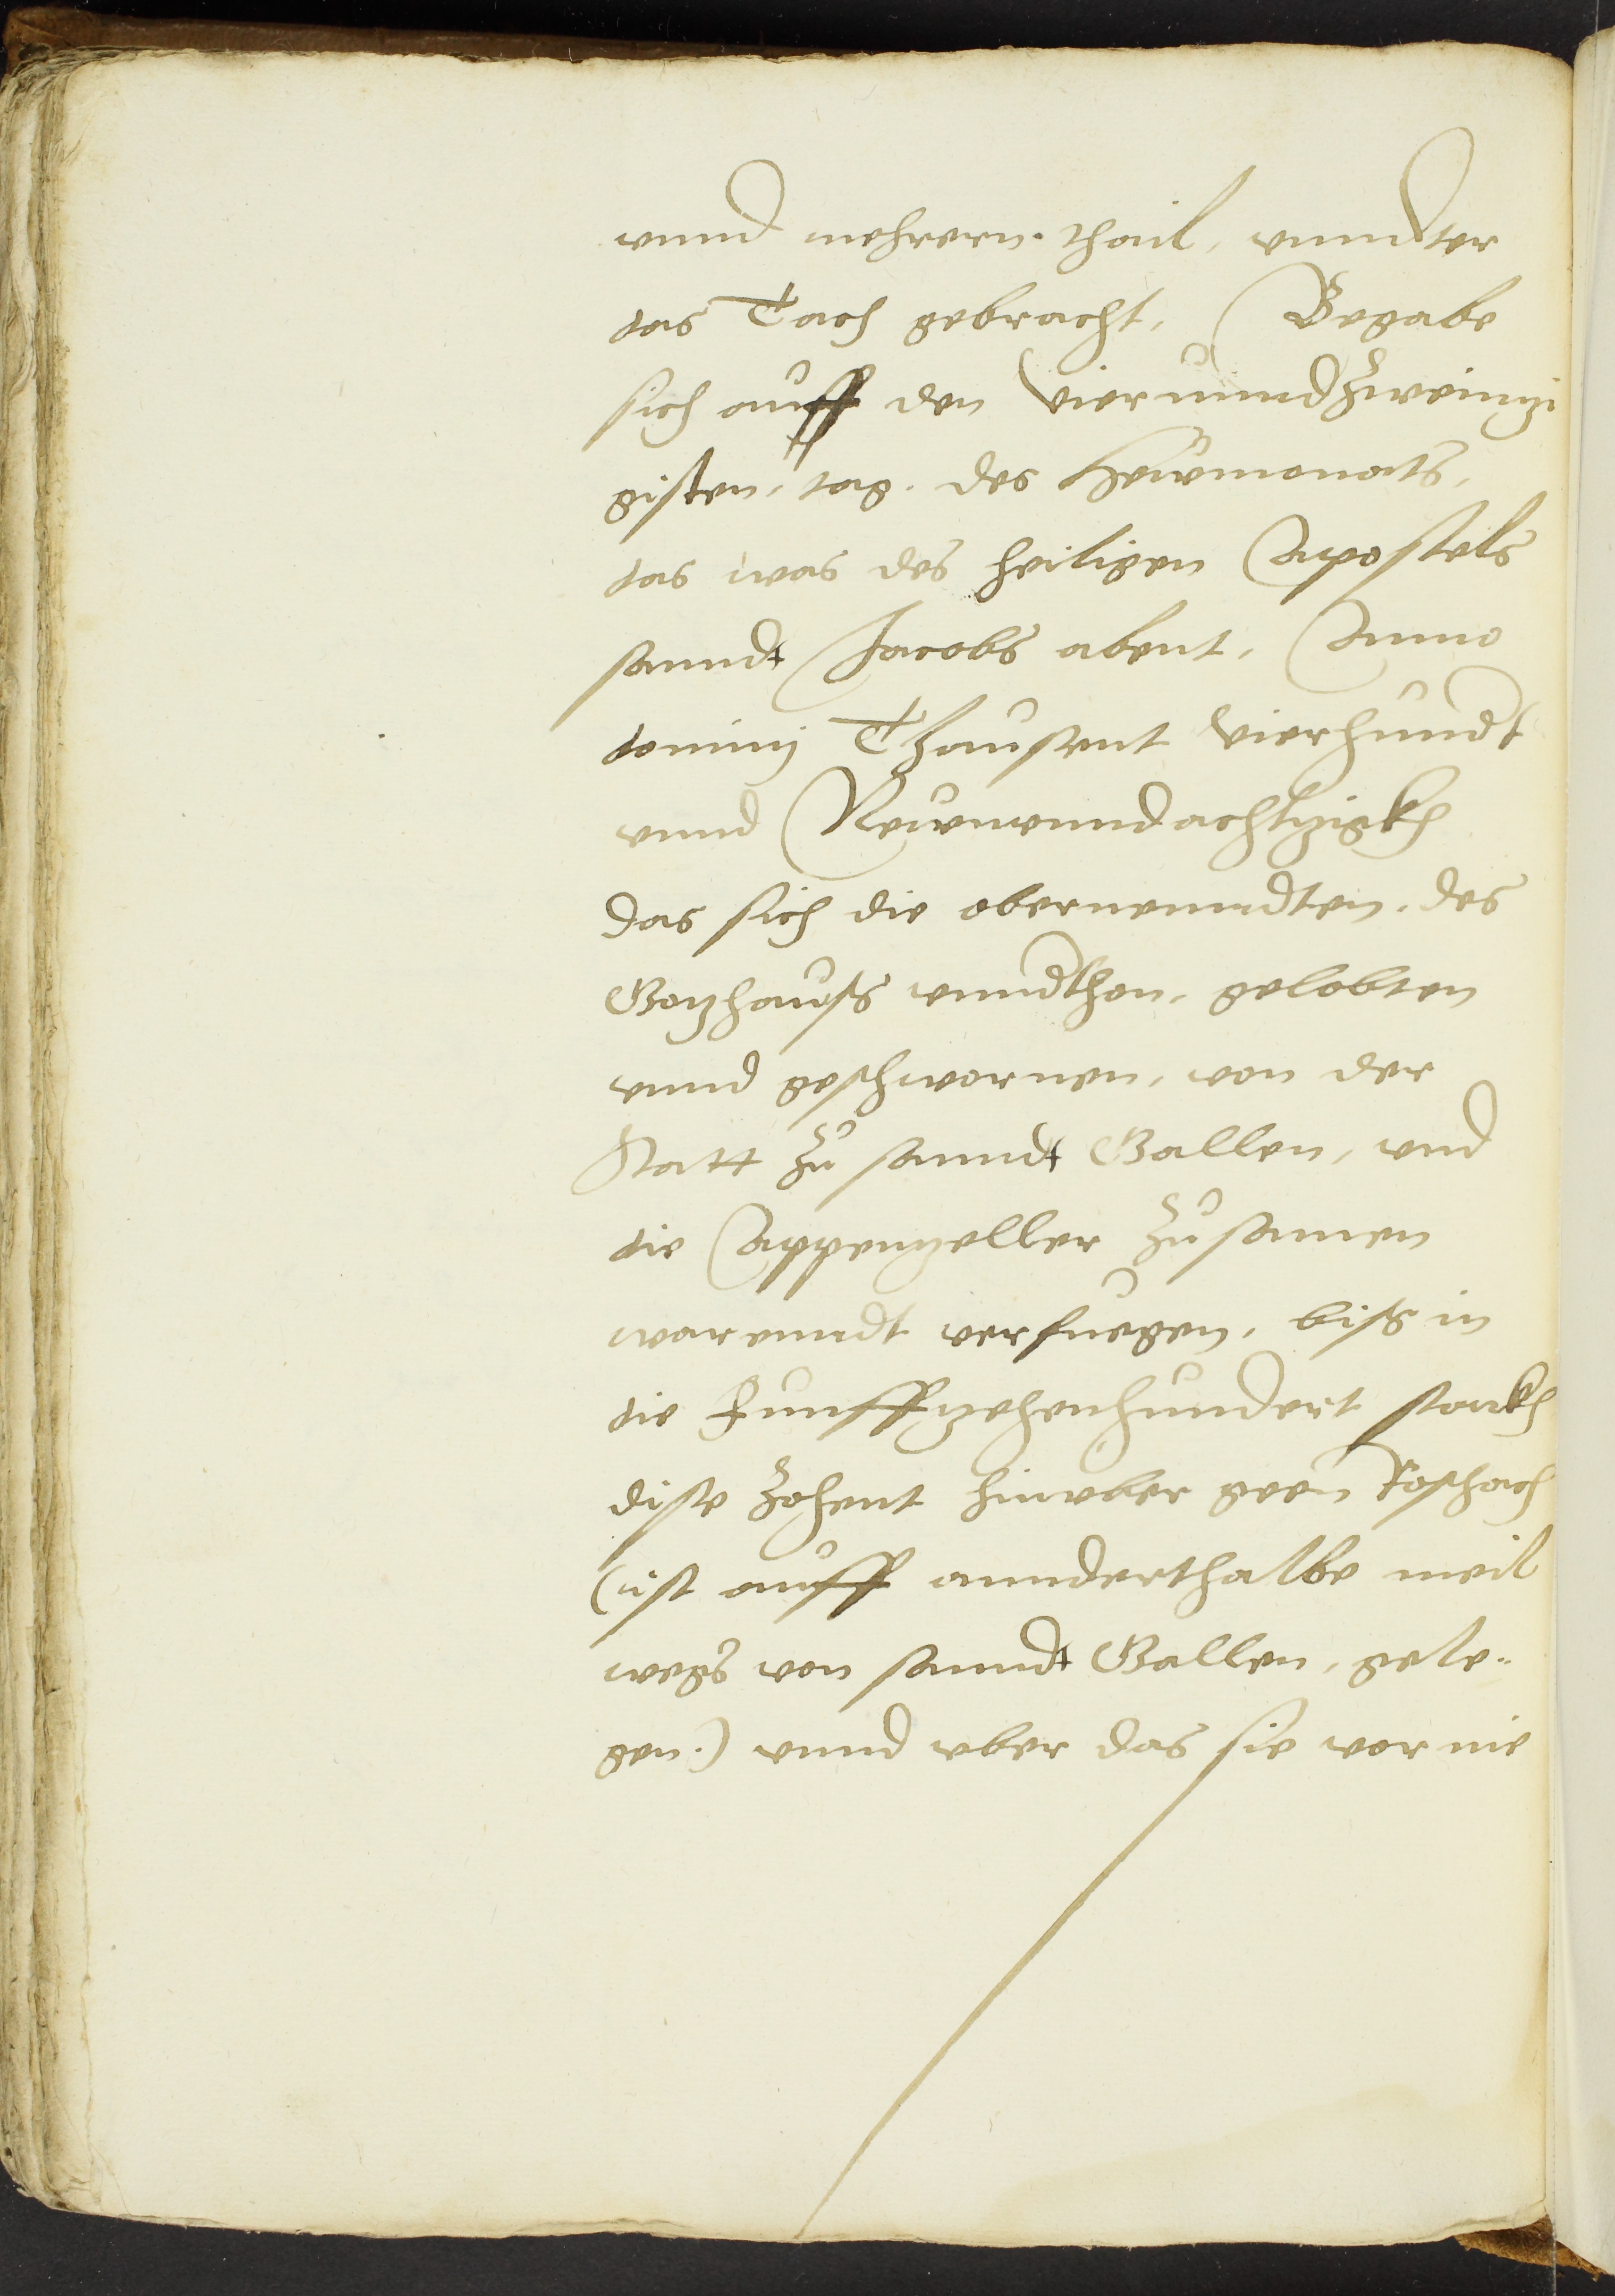 vnnd mehrern thail, vnndter
das Tach gebracht, Begabe
sich auff den vierunndzweintzi
gisten, tag. des Heuwmonats,
das was des heiligen Apostels
sanndt Jacobs abent, Anno
dominj Thausent vierhundt
vnnd Neuwunndachtzigkh
das sich die obernenndten. des
Gotzhauss vnndthon, gelobten
vnnd geschwornen, von der
Statt zu sanndt Gallen, vnd
die Appentzeller zusamen
warenndt verfuegen, biss in
die Funfftzehenhundert starkh
dise zohent hinuber geen Roschach
(ist auff annderthalbe meil
wegs von sanndt Gallen, gele-
gen.) vnnd vber das sie vor nie